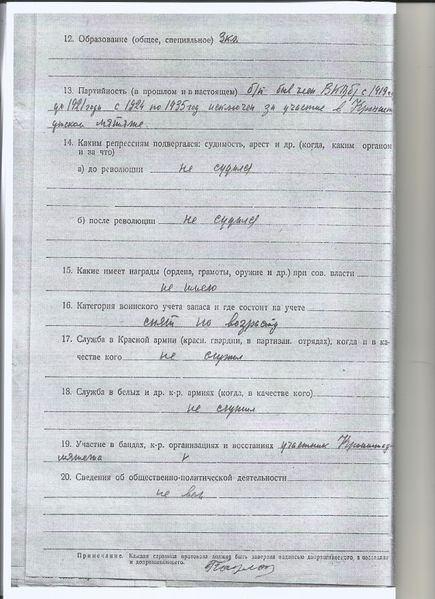 12. Образование (общее, специальное) 3кл.
13. Партийность (в прошлом и в настоящем) б/п был член ВКП(б) с 1919 г.
до 1921 году с 1924 по 1935 год исключен за участие в Кроншт
дтском мятеже.
14. Каким репрессиям подвергался: судимость, арест и др. (когда, каким органом
и за что)
а) до революции не судился
б) после революции не судился
15. Какие имеет награды (ордена, грамоты, оружие и др.) при сов. власти
не имею
16. Категория воинского учета запаса и где состоит на учете
снят по возрасту
17. Служба в Красной армии (красн. гвардии, в партизан. отрядах), когда и в ка-
честве кого не служил
18. Служба в белых и др. к.-р. армиях (когда, в качестве кого)
не служил
19. Участие в бандах, к.-р. организациях и восстаниях участник Кронштад
мятежа
20. Сведения об общественно-политической деятельности
не вел
Примечание. Каждая страница протокола должна быть заверена подписью допрашиваемого, а последняя
и допрашивающего.